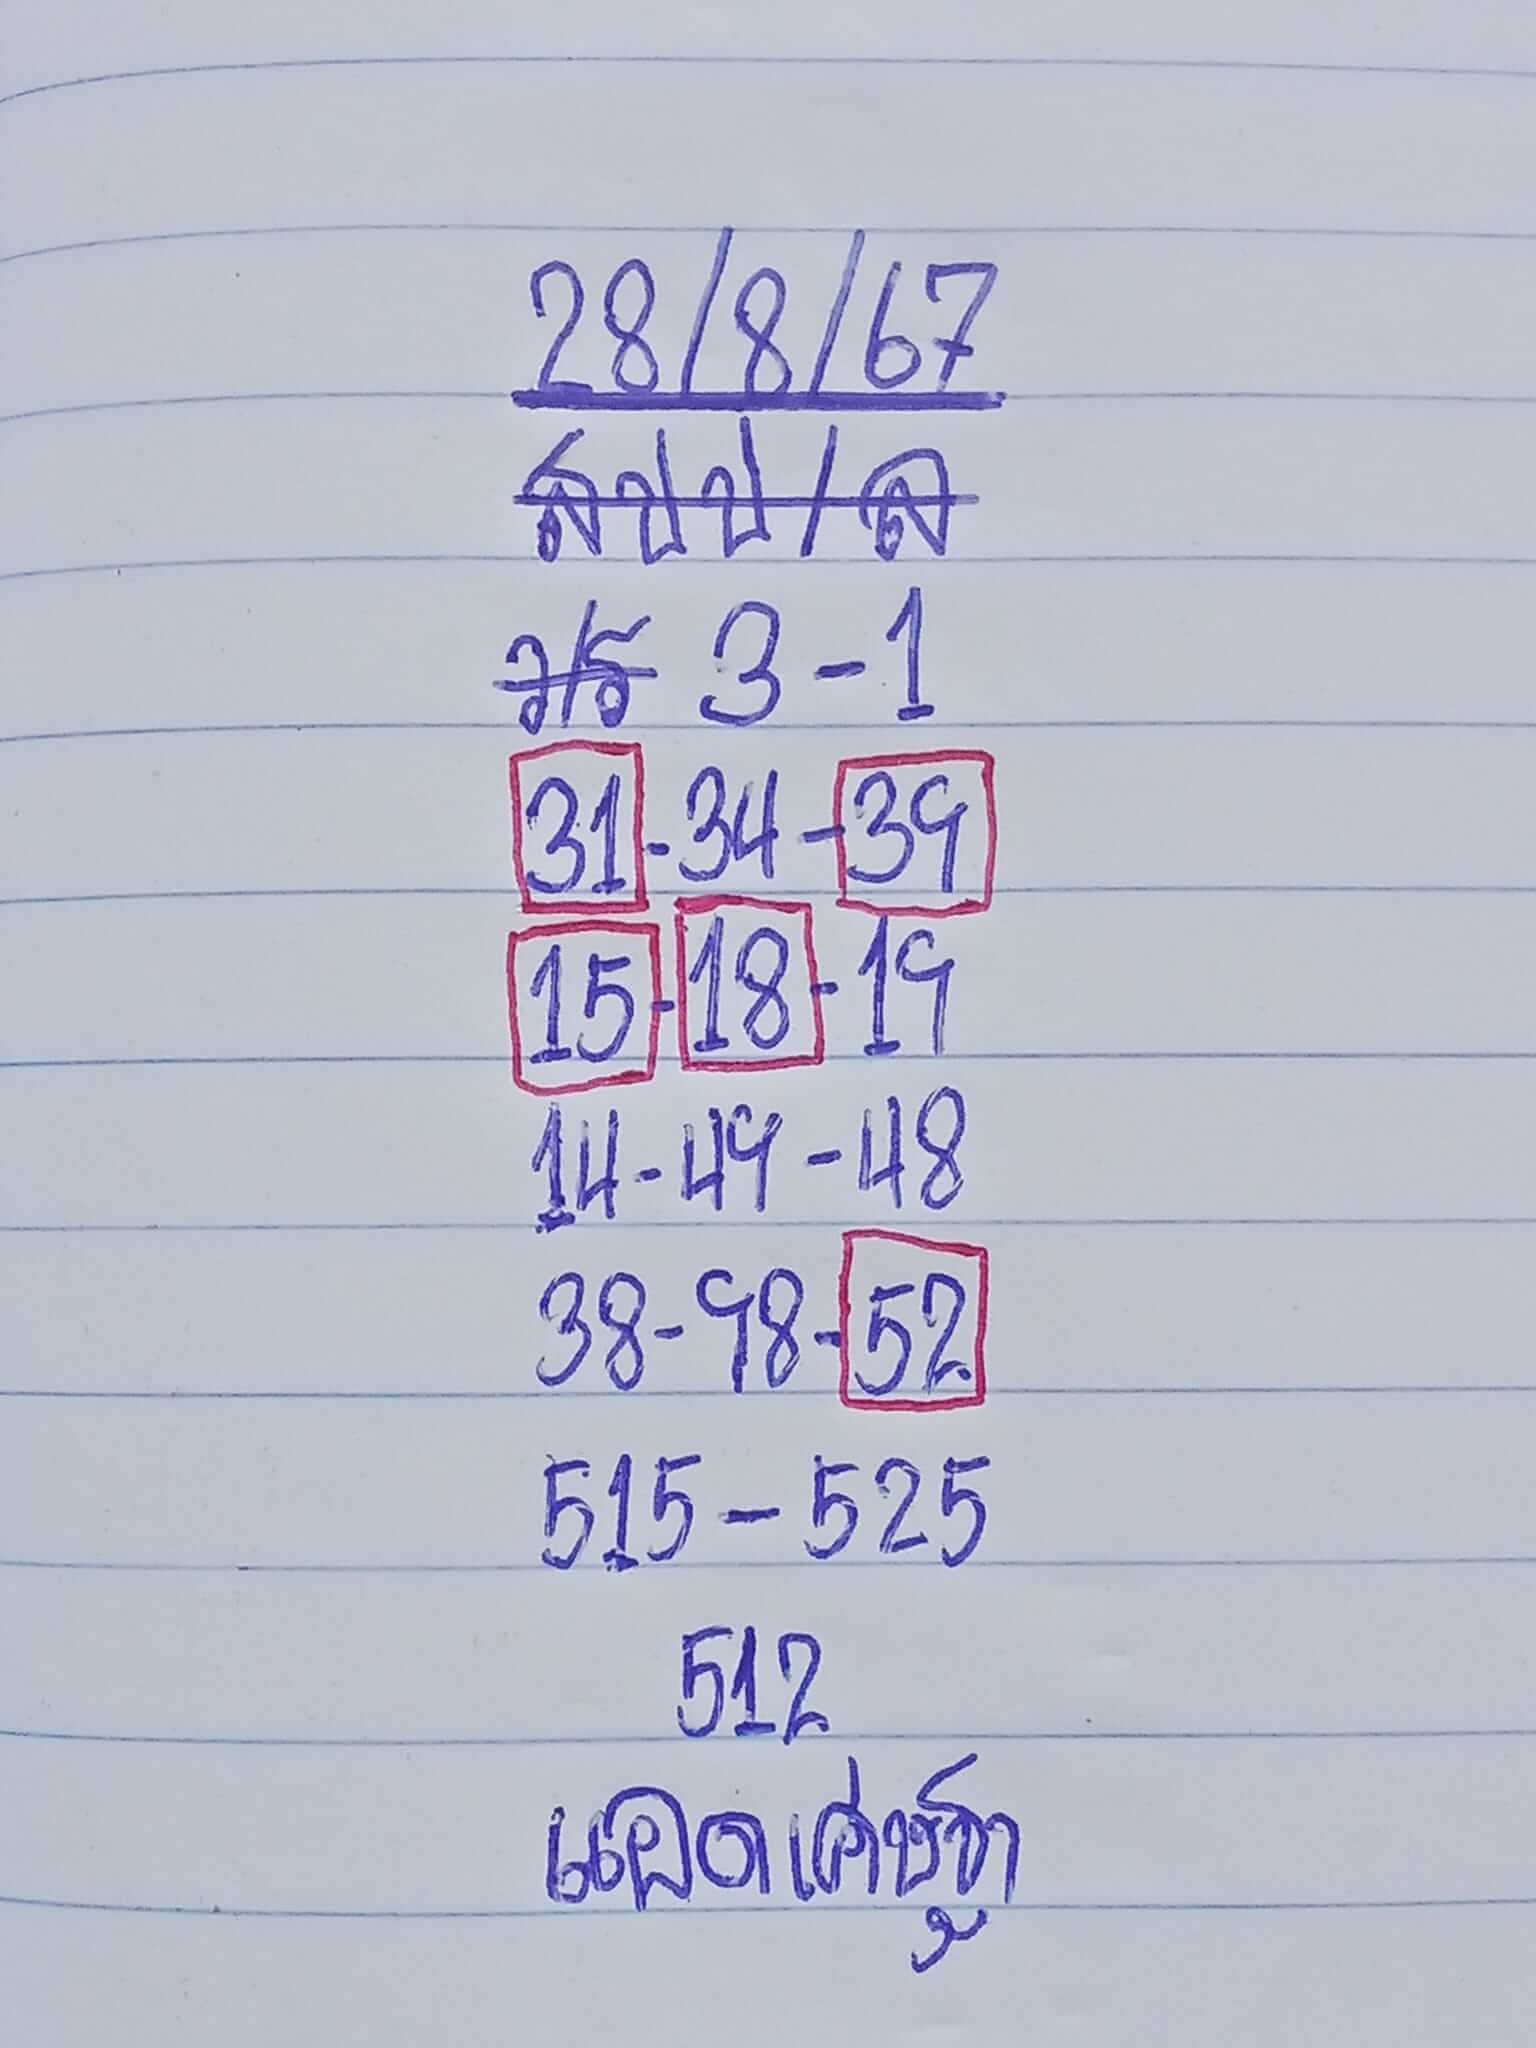 28/8/67
สปป/ล
ว/ร 3-1
31-34-39
15-18-19
14-49-48
38-98-52
515-525
512
แฝดเศรษฐี